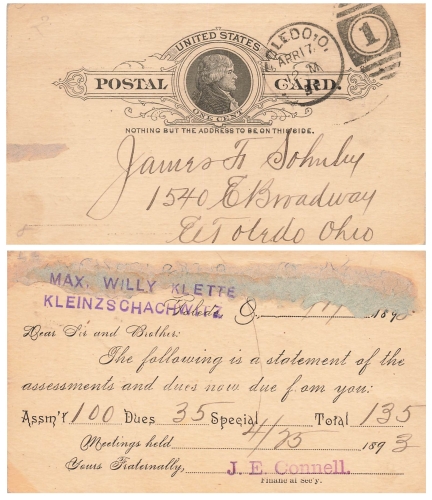 UNITED STATES
POSTAL CARD.
ONE CENT
TOLEDO, O.
APR 17
12 M
1
NOTHING BUT THE ADDRESS TO BE ON THIS SIDE.
James F Sohnly
1540 E Broadway
E Toledo Ohio
MAX WILLY KLETTE
KLEINZSCHACHWITZ
Toledo, O. 189
Dear Sir and Brother:
The following is a statement of the
assessments and dues now due from you:
Assm't 100 Dues 35 Special Total 135
Meetings held 4/25 1893
Yours Fraternally, J. E. Connell.
Financial Sec'y.